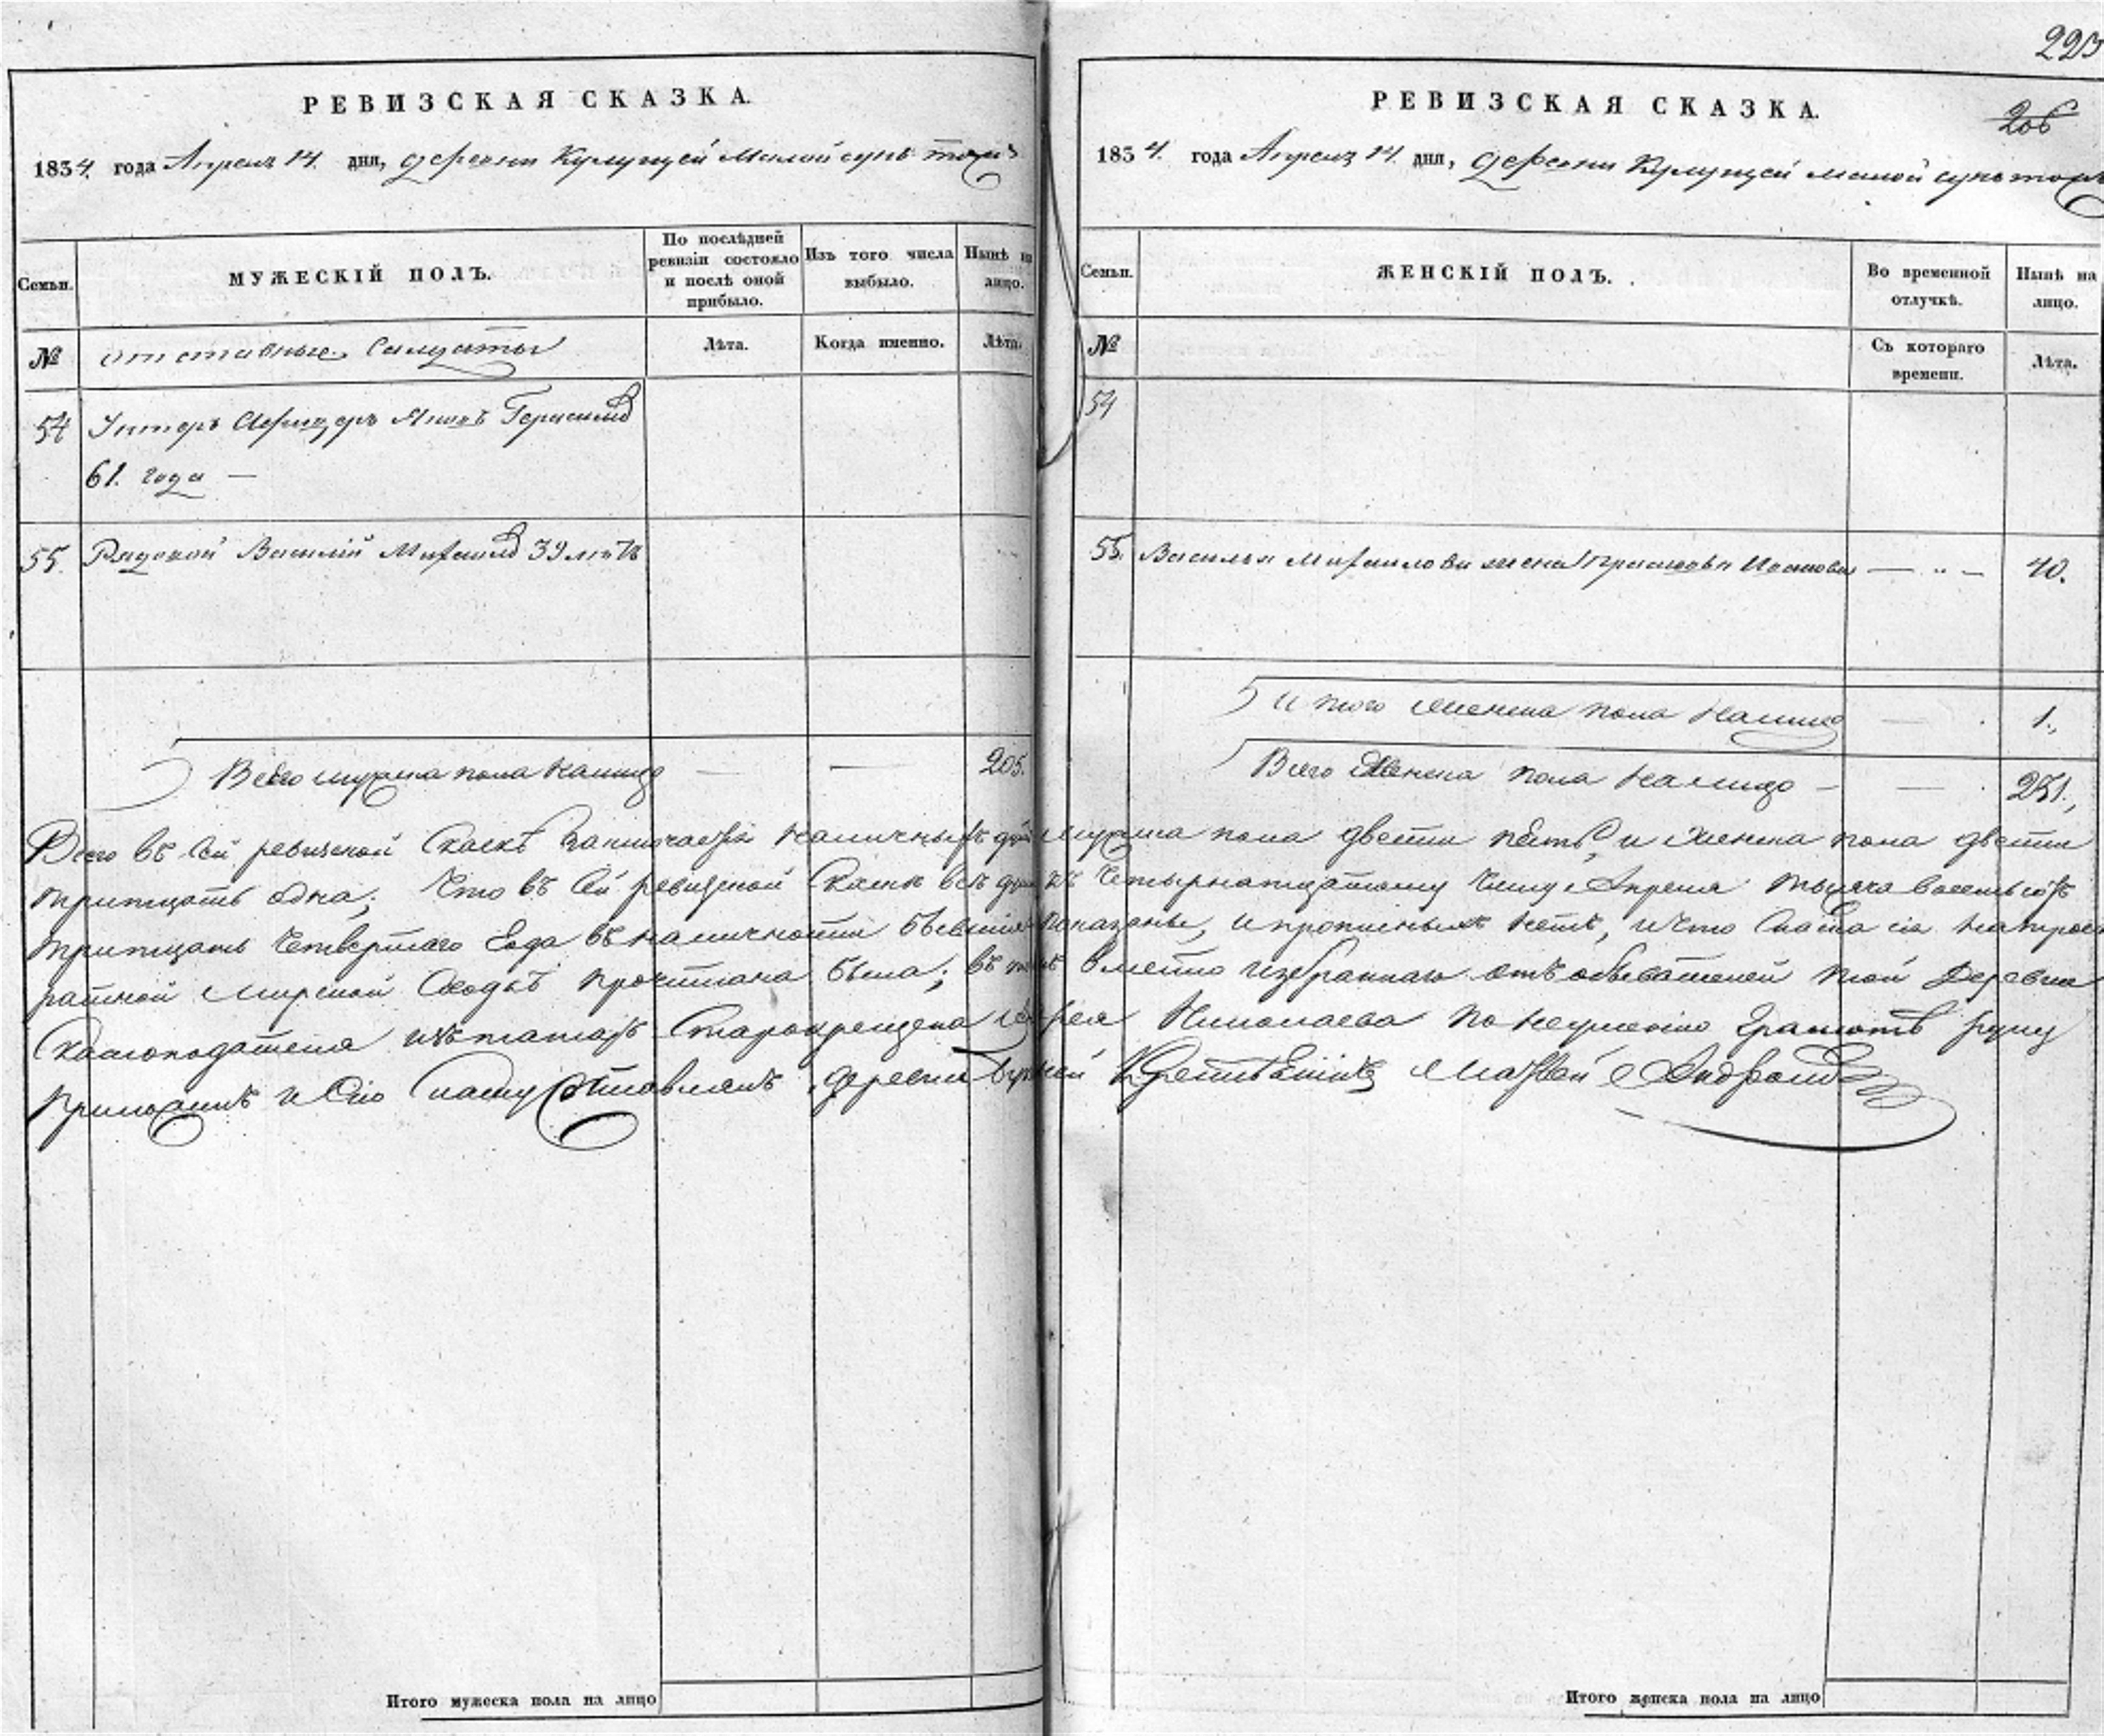 РЕВИЗСКАЯ СКАЗКА.
1834 года Апреля 14. дня, деревни
Семьи.
МУЖЕСКІЙ ПОЛЪ.
По послѣдней ревизіи состояло и послѣ оной прибыло.
Изъ того числа выбыло.
Нынѣ на лицо.
№
отставные Салдаты
Лѣта.
Когда именно.
Лѣта.
54
Унтеръ Афицеръ Яковъ Герасимовъ
61. года —
55.
Рядовой Василий Михаиловъ 39 летъ
Всего мужеска пола налицо — — 205.
Итого мужеска пола на лицо
223
206
РЕВИЗСКАЯ СКАЗКА.
1834. года Апреля 14. дня, деревни
Семьи.
ЖЕНСКІЙ ПОЛЪ.
Во временной отлучкѣ.
Нынѣ на лицо.
№
Съ котораго времени.
Лѣта.
54
55.
Василья Михаилова жена Прасковья Иванова — " — 40.
Итого женска пола налицо — 1.
Всего женска пола налицо — — 231.
Всего въ сей ревизской Сказкѣ заключается наличныхъ душъ мужска пола двести пять, и женска пола двести
тритцать одна; Что въ сей ревизской Сказке все души къ четырнатцатому числу Апреля тысяча восемьсотъ
тритцать четвертаго года въ наличности бывшия показаны, и прописныхъ нетъ, и что Скаска сия
мирской Сходкѣ прочитана была; въ томъ вместо избраннаго отъ обывателей той деревни
Скаскоподателя изъ татаръ Старокрещена Николаева по неумению грамоте руку
приложилъ и сию скаску деревни Крестьянинъ Матвей Андреевъ
Итого женска пола на лицо